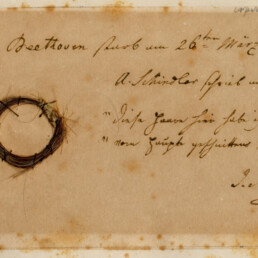 Beethoven starb am 26ten März
A. Schindler schrieb
"diese Haare hier hab i
"vom Haupte geschnitten